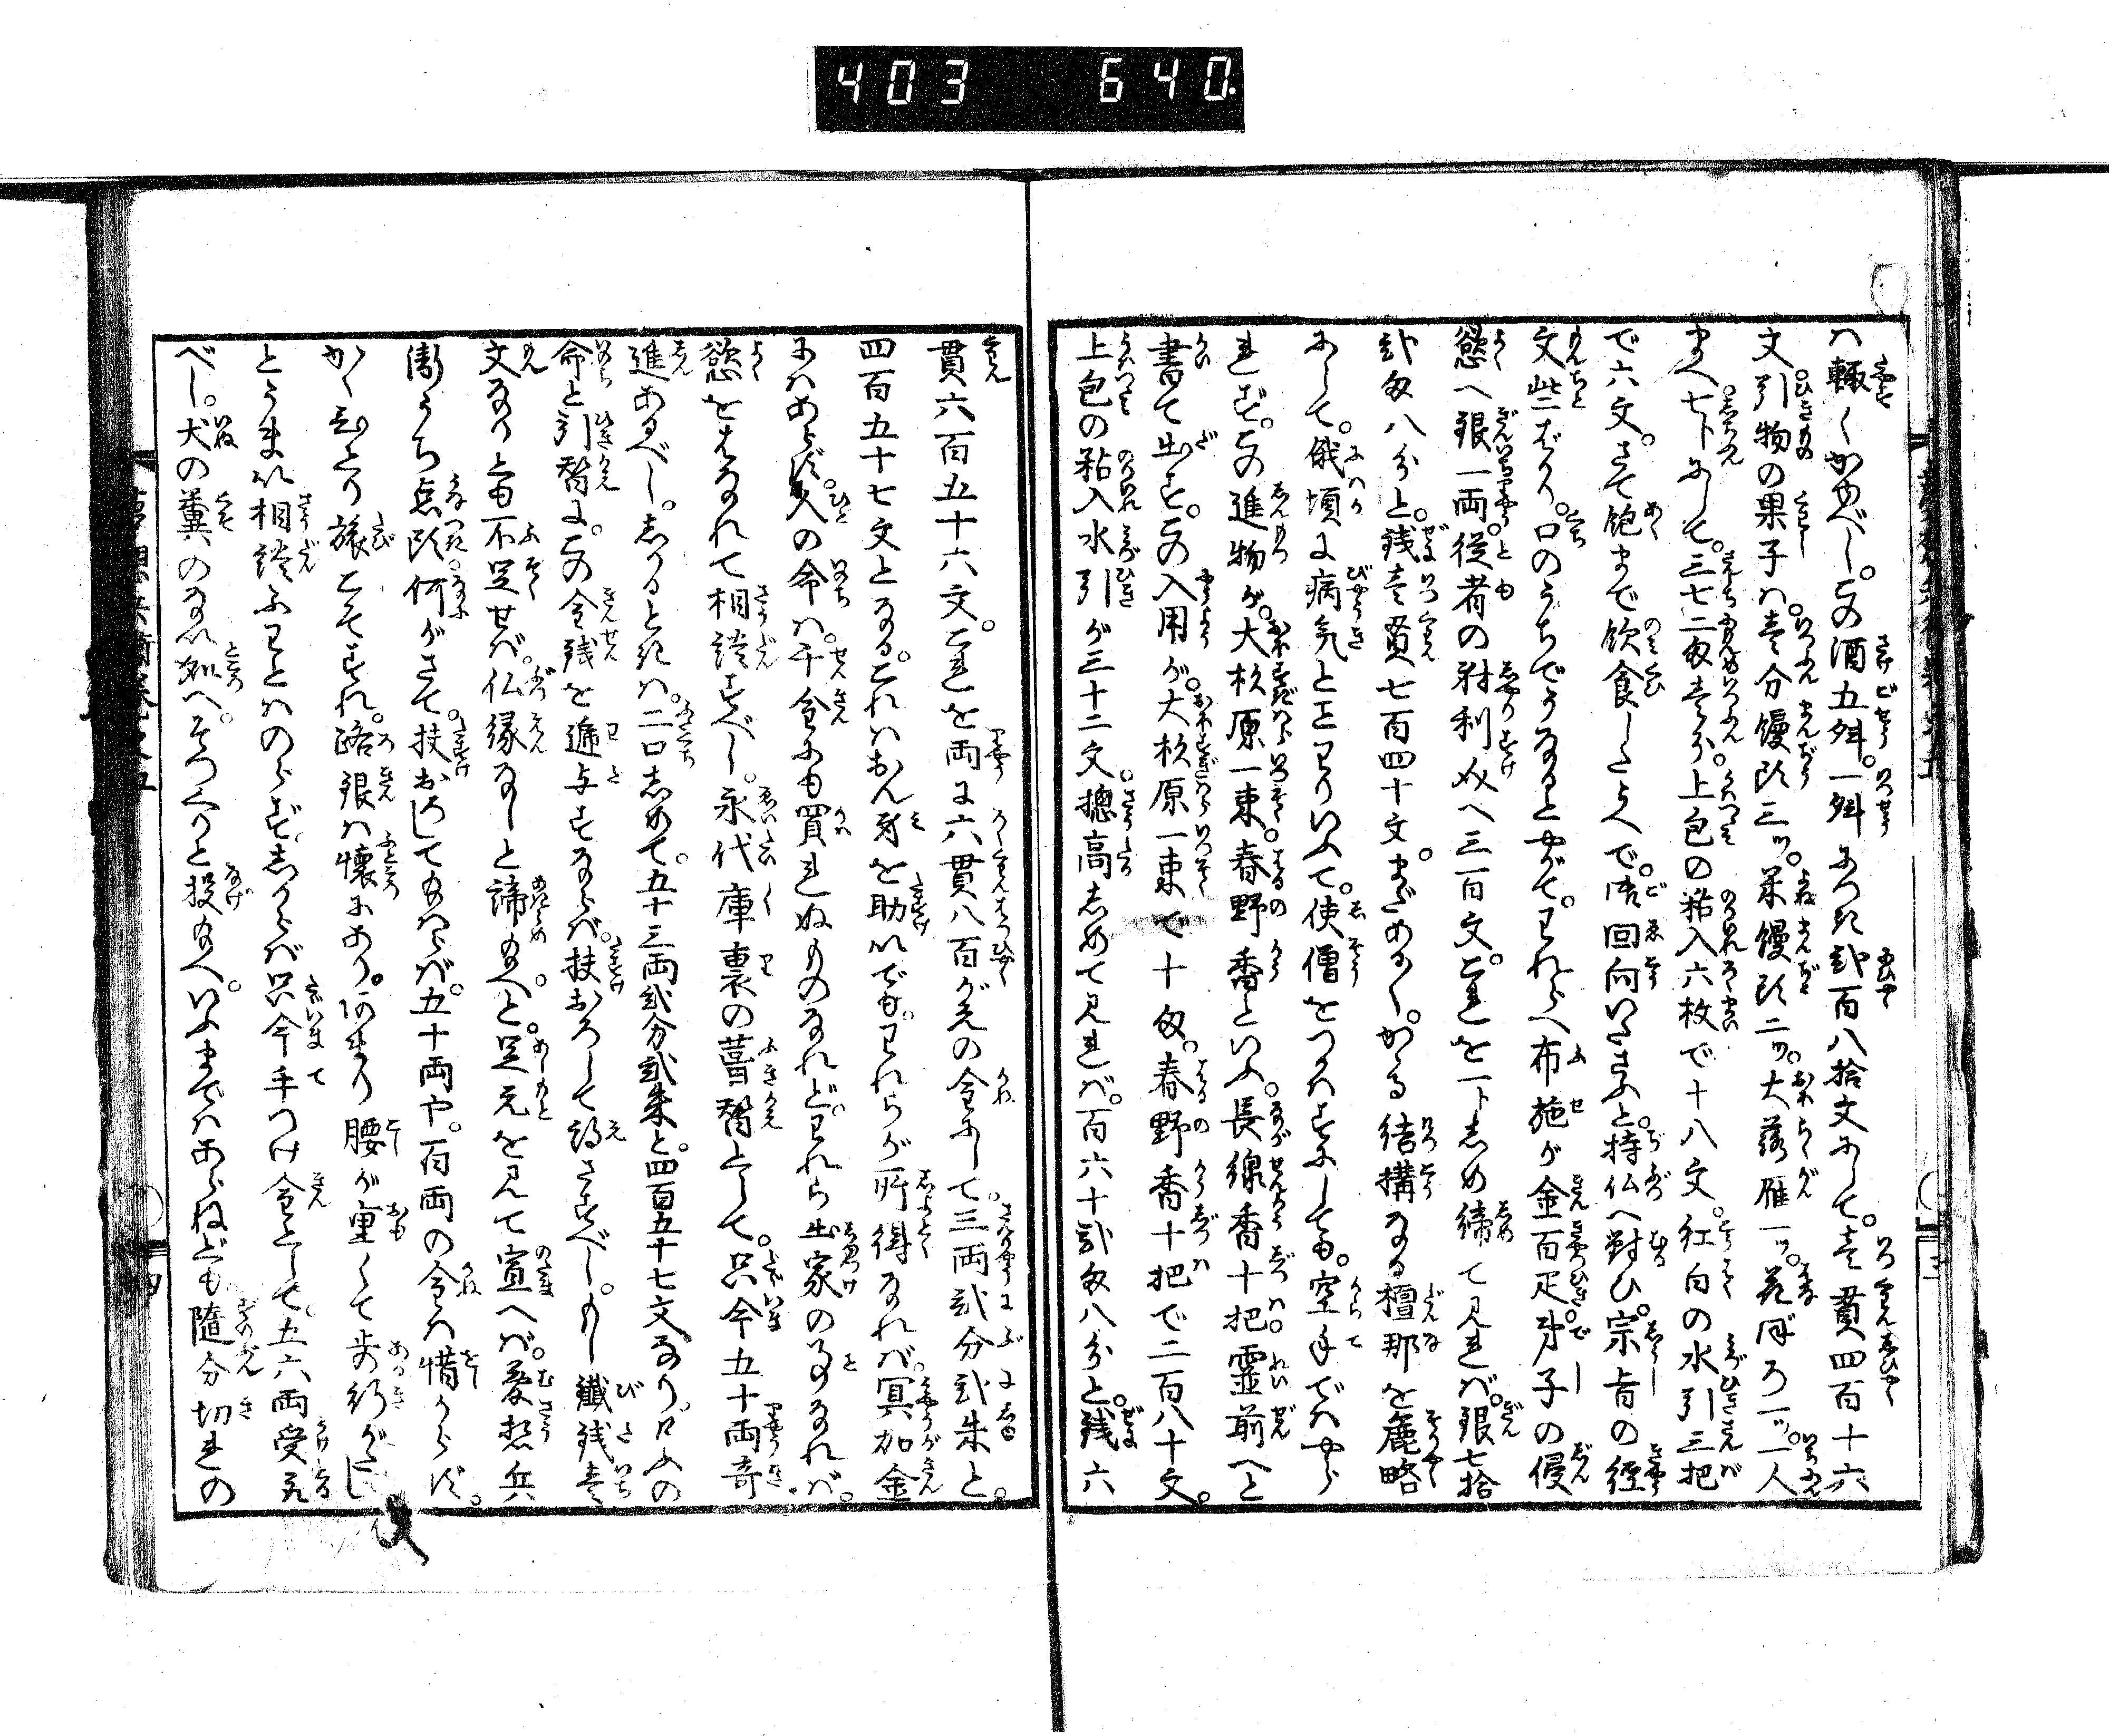 403 640
ハ輙くかゆべし。この酒五舛。一舛につき弐百八拾文にして。壱貫四百十六
文。引物の果子ハ。壱分饅頭三ツ。米饅頭二ツ。大落雁一ツ。花ぼろ一ツ。一人
まへ七下にして。三七二匁壱分。上包の粘入六枚で十八文。紅白の水引三把
で六文。さて飽まで飲食したうへで。御回向いたさふと。持仏へ対ひ。宗旨の経
文些ばかり。口のうちでうなるとやがて。われらへ布施が金百疋。弟子の侵
慾へ銀一両。従者の射利奴へ三百文。これを一下しめ締て見れば。銀七拾
弐匁八分と。銭壱貫七百四十文。まだある〱。かゝる結構なる檀那を麁略
にして。俄頃に病気とことわりいふて。使僧をつかはすにしても。空手ではやら
れず。この進物が。大杉原一束。春野香といふ。長線香十把。霊前へと
書て出す。この入用が。大杉原一束で十匁。春野香十把で二百八十文。
上包の粘入水引が三十二文。摠高しめて見れば。百六十弐匁八分と。銭六
貫六百五十六文。これを両に六貫八百がえの金にして。三両弐分弐朱と。
四百五十七文となる。これハおん身を助いでも。われらが所得なれバ。冥加金
にハあらず。人の命ハ。千金にも買れぬものなれど。われら出家の事なれバ。
慾をはなれて相談すべし。永代庫裏の葺替として。只今五十両寄
進あるべし。しかるときハ。二口しめて。五十三両弐分弐朱と。四百五十七文なり。只ふの
命と引替に。この金残を逓与すならバ。扶おろして得さすべし。もし鐚銭壱
文なりとも不足せバ。仏縁なしと諦めへと。足元を見て宣へバ。夢想兵
衛うち点頭。何がさて。扶おろして給はらバ。五十両や。百両の金ハ惜からず。
かくひとり旅こそすれ。路銀ハ懐にあり。あまり腰が重くて歩行がたし
とうまい相談にことハのらず。しからバ只今手つけ金として。五六両受取
べし。犬の糞のない処へ。そつくりと投給へ。いふまではあらねども。随分切れの